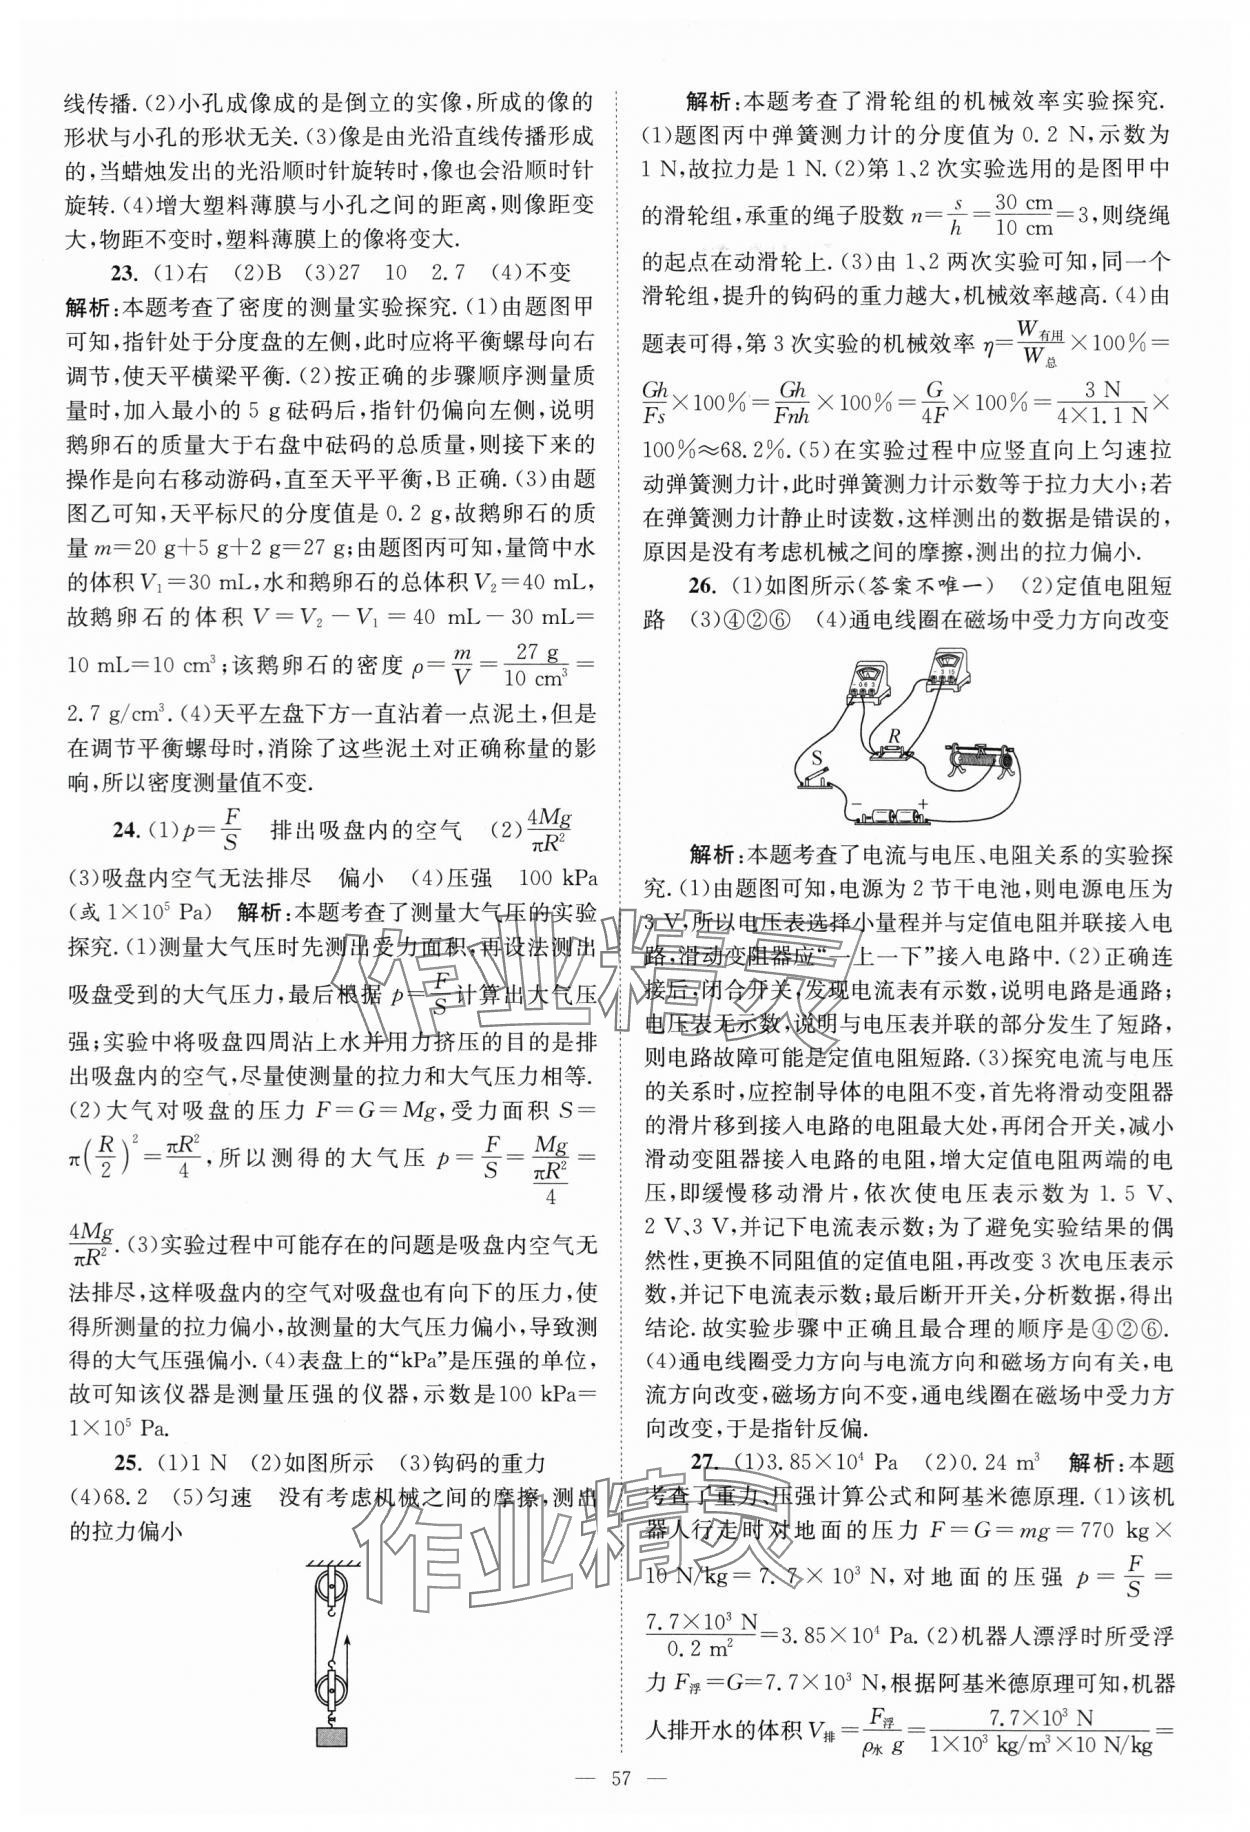 线传播.(2)小孔成像成的是倒立的实像,所成的像的
形状与小孔的形状无关.(3)像是由光沿直线传播形成
的,当蜡烛发出的光沿顺时针旋转时,像也会沿顺时针
旋转.(4)增大塑料薄膜与小孔之间的距离,则像距变
大,物距不变时,塑料薄膜上的像将变大.
23. (1)右 (2)B (3)27 10 2.7 (4)不变
解析:本题考查了密度的测量实验探究.(1)由题图甲
可知,指针处于分度盘的左侧,此时应将平衡螺母向右
调节,使天平横梁平衡.(2)按正确的步骤顺序测量质
量时,加入最小的 5 g 砝码后,指针仍偏向左侧,说明
鹅卵石的质量大于右盘中砝码的总质量,则接下来的
操作是向右移动游码,直至天平平衡,B正确.(3)由题
图乙可知,天平标尺的分度值是 0.2 g,故鹅卵石的质
量 m=20 g+5 g+2 g=27 g;由题图丙可知,量筒中水
的体积 V₁=30 mL,水和鹅卵石的总体积 V₂=40 mL,
故鹅卵石的体积 V=V₂-V₁=40 mL-30 mL=
10 mL=10 cm³;该鹅卵石的密度 ρ=m/V=27 g/10 cm³=
2.7 g/cm³.(4)天平左盘下方一直沾着一点泥土,但是
在调节平衡螺母时,消除了这些泥土对正确称量的影
响,所以密度测量值不变.
24. (1)p=F/S 排出吸盘内的空气 (2)4Mg/πR²
(3)吸盘内空气无法排尽 偏小 (4)压强 100 kPa
(或 1×10⁵ Pa) 解析:本题考查了测量大气压的实验
探究.(1)测量大气压时先测出受力面积,再设法测出
吸盘受到的大气压力,最后根据 p=F/S计算出大气压
强;实验中将吸盘四周沾上水并用力挤压的目的是排
出吸盘内的空气,尽量使测量的拉力和大气压力相等.
(2)大气对吸盘的压力 F=G=Mg,受力面积 S=
π(R/2)²=πR²/4,所以测得的大气压 p=F/S=Mg/(πR²/4)=
4Mg/πR².(3)实验过程中可能存在的问题是吸盘内空气无
法排尽,这样吸盘内的空气对吸盘也有向下的压力,使
得所测量的拉力偏小,故测量的大气压力偏小,导致测
得的大气压强偏小.(4)表盘上的“kPa”是压强的单位,
故可知该仪器是测量压强的仪器,示数是100 kPa=
1×10⁵ Pa.
25. (1)1 N (2)如图所示 (3)钩码的重力
(4)68.2 (5)匀速 没有考虑机械之间的摩擦,测出
的拉力偏小
解析:本题考查了滑轮组的机械效率实验探究.
(1)题图丙中弹簧测力计的分度值为 0.2 N,示数为
1 N,故拉力是 1 N.(2)第 1、2 次实验选用的是图甲中
的滑轮组,承重的绳子股数 n=s/h=30 cm/10 cm=3,则绕绳
的起点在动滑轮上.(3)由 1、2 两次实验可知,同一个
滑轮组,提升的钩码的重力越大,机械效率越高.(4)由
题表可得,第 3 次实验的机械效率 η=W有用/W总×100%=
Gh/Fs×100%=Gh/Fnh×100%=G/4F×100%=3 N/(4×1.1 N)×
100%≈68.2%.(5)在实验过程中应竖直向上匀速拉
动弹簧测力计,此时弹簧测力计示数等于拉力大小;若
在弹簧测力计静止时读数,这样测出的数据是错误的,
原因是没有考虑机械之间的摩擦,测出的拉力偏小.
26. (1)如图所示(答案不唯一) (2)定值电阻短
路 (3)④②⑥ (4)通电线圈在磁场中受力方向改变
- 0.6 3
- 3 15
R
S
- +
解析:本题考查了电流与电压、电阻关系的实验探
究.(1)由题图可知,电源为 2 节干电池,则电源电压为
3 V,所以电压表选择小量程并与定值电阻并联接入电
路,滑动变阻器应“一上一下”接入电路中.(2)正确连
接后,闭合开关,发现电流表有示数,说明电路是通路;
电压表无示数,说明与电压表并联的部分发生了短路,
则电路故障可能是定值电阻短路.(3)探究电流与电压
的关系时,应控制导体的电阻不变,首先将滑动变阻器
的滑片移到接入电路的电阻最大处,再闭合开关,减小
滑动变阻器接入电路的电阻,增大定值电阻两端的电
压,即缓慢移动滑片,依次使电压表示数为 1.5 V、
2 V、3 V,并记下电流表示数;为了避免实验结果的偶
然性,更换不同阻值的定值电阻,再改变 3 次电压表示
数,并记下电流表示数;最后断开开关,分析数据,得出
结论.故实验步骤中正确且最合理的顺序是④②⑥.
(4)通电线圈受力方向与电流方向和磁场方向有关,电
流方向改变,磁场方向不变,通电线圈在磁场中受力方
向改变,于是指针反偏.
27. (1)3.85×10⁴ Pa (2)0.24 m³ 解析:本题
考查了重力、压强计算公式和阿基米德原理.(1)该机
器人行走时对地面的压力 F=G=mg=770 kg×
10 N/kg=7.7×10³ N,对地面的压强 p=F/S=
7.7×10³ N/0.2 m²=3.85×10⁴ Pa.(2)机器人漂浮时所受浮
力 F浮=G=7.7×10³ N,根据阿基米德原理可知,机器
人排开水的体积 V排=F浮/ρ水g=7.7×10³ N/(1×10³ kg/m³×10 N/kg)=
— 57 —
作业精灵
作业精灵